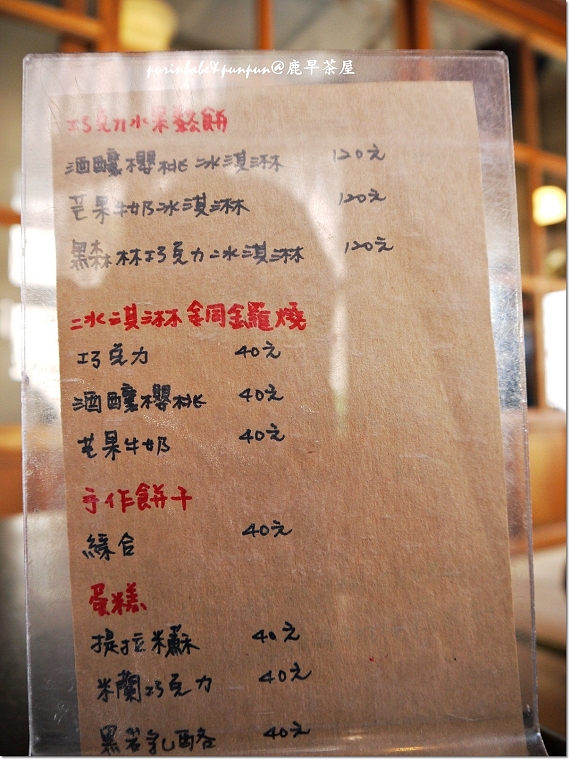 purinbabe&punpun@鹿早茶屋
巧克力水果鬆餅
酒釀櫻桃冰淇淋 120元
芒果牛奶冰淇淋 120元
黑森林巧克力冰淇淋 120元
冰淇淋銅鑼燒
巧克力 40元
酒釀櫻桃 40元
芒果牛奶 40元
手作餅干
綜合 40元
蛋糕
提拉米蘇 40元
米蘭巧克力 40元
黑岩乳酪 40元